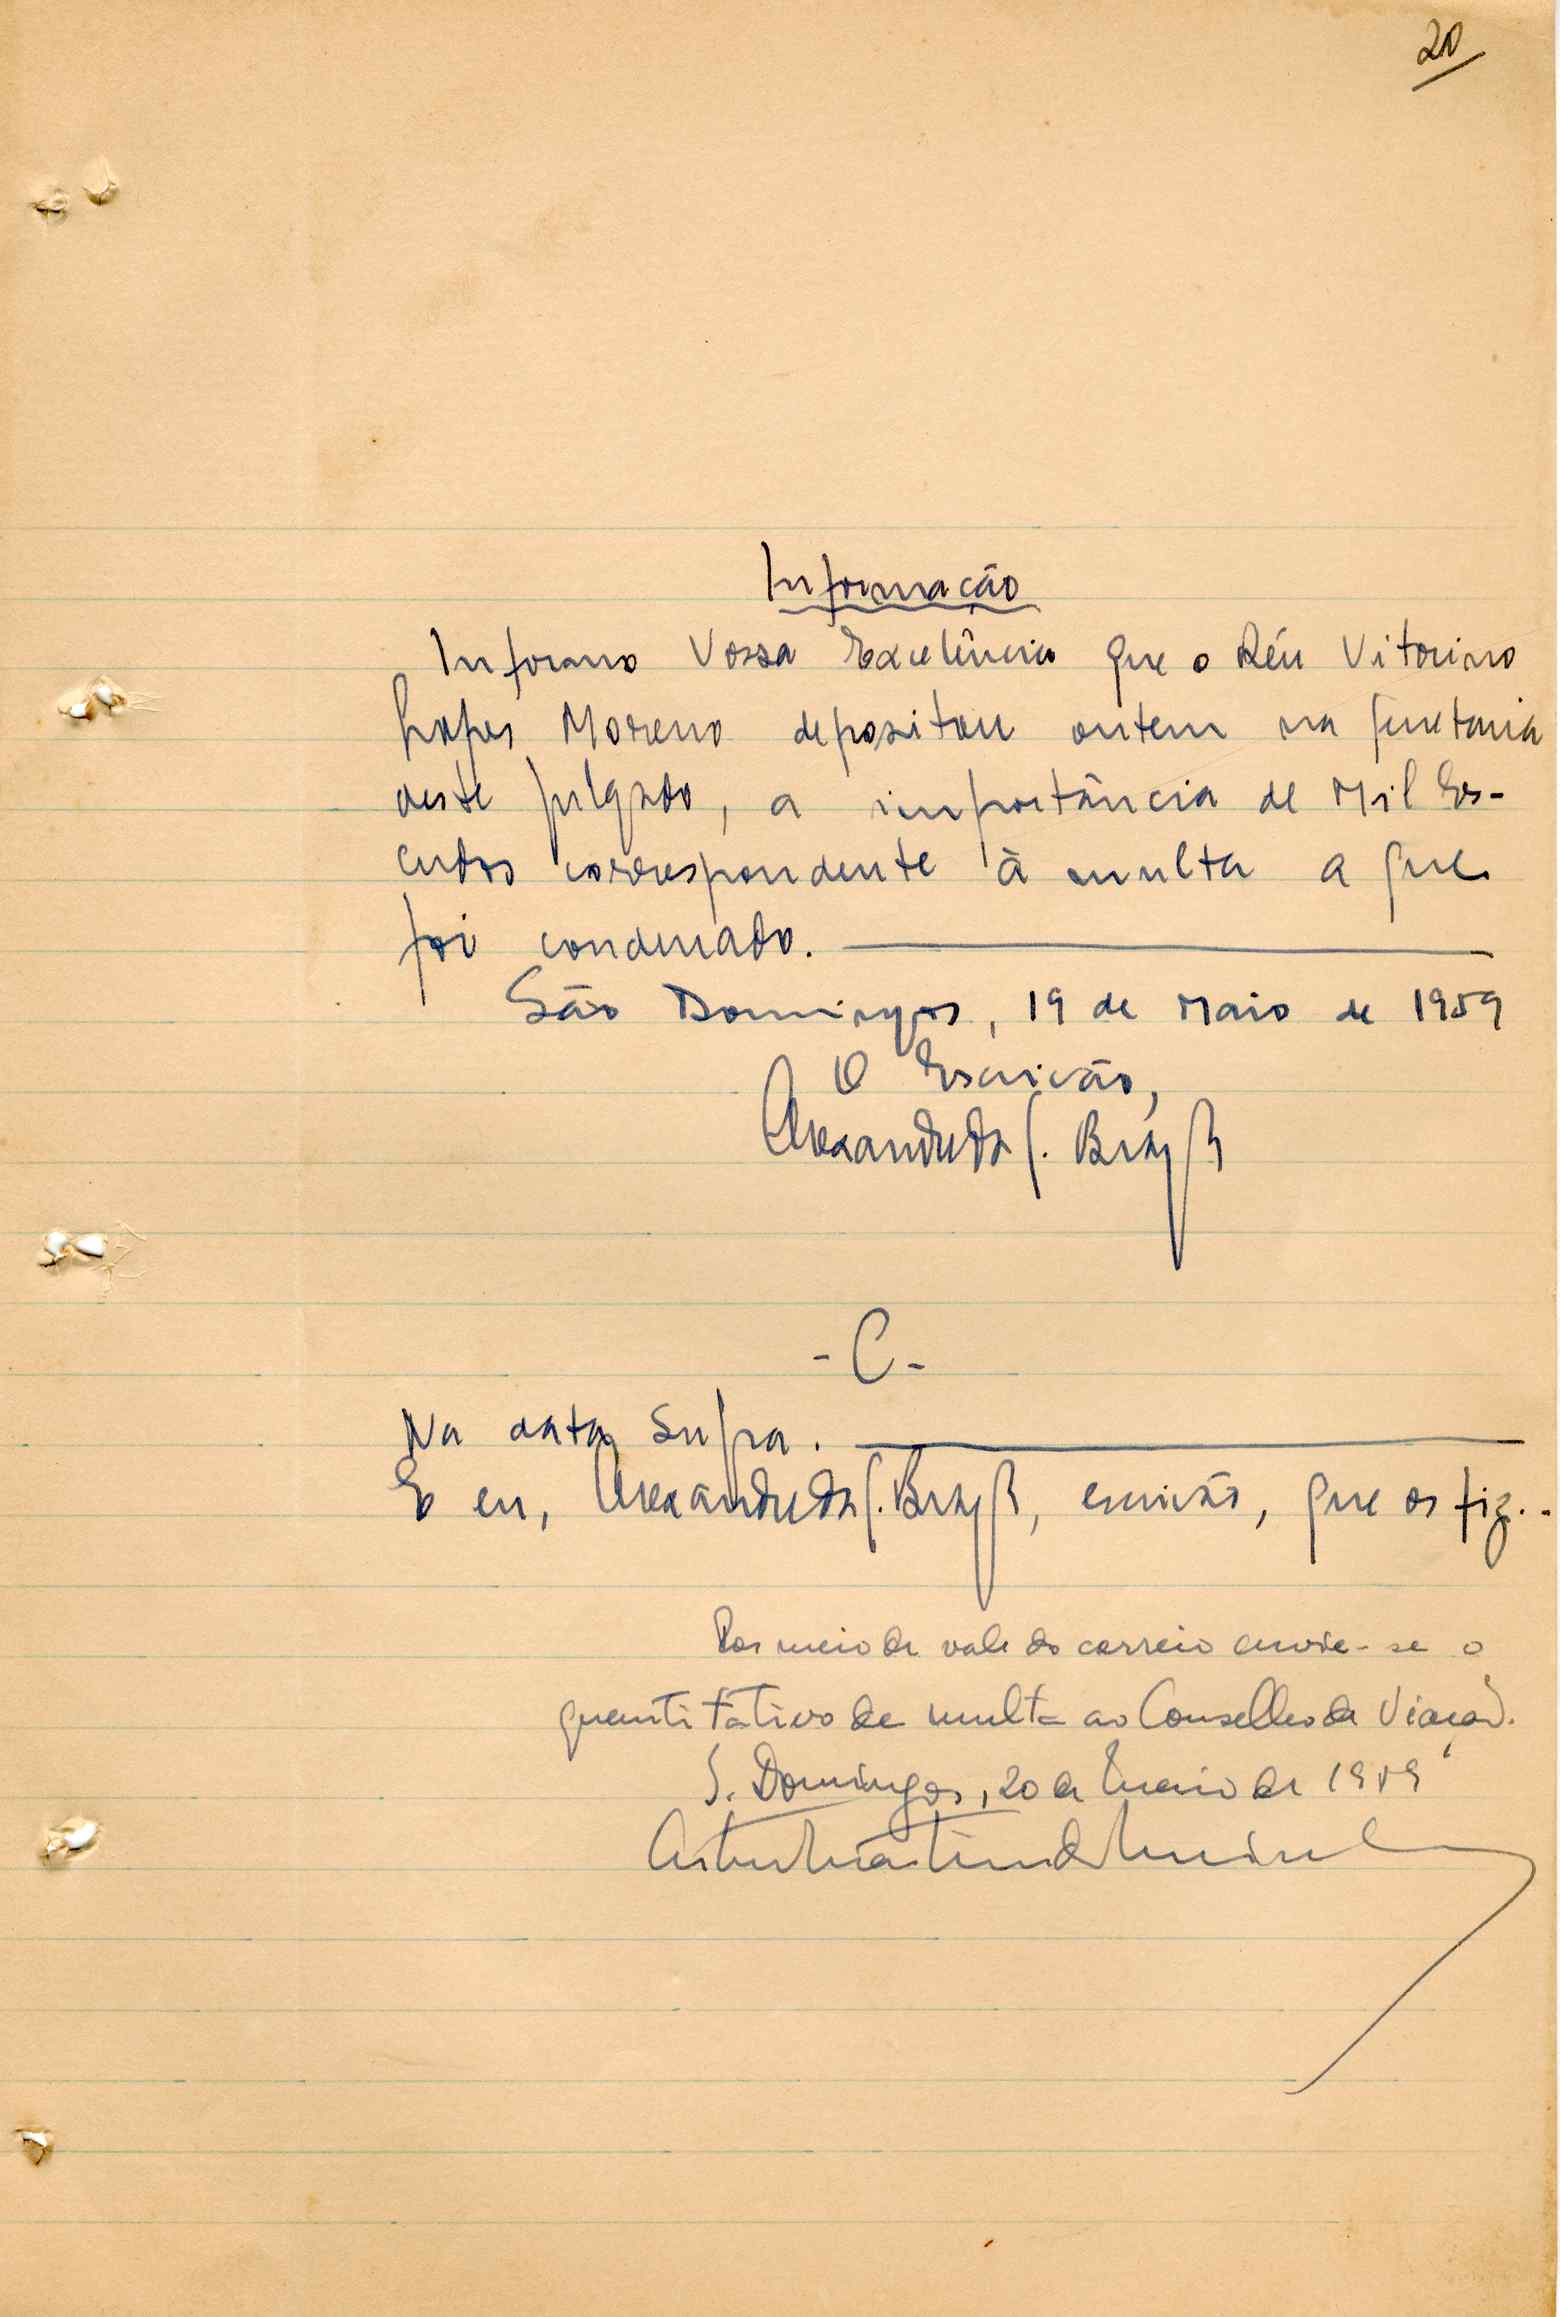 20
Informação
Informo Vossa Excelência que o Réu Vitorino
Lopes Moreno depositou ontem na secretaria
deste julgado, a importância de Mil Es-
cudos correspondente à multa a que
foi condenado.
São Domingos, 19 de Maio de 1959
O Escrivão,
- C -
Na data supra.
E eu, escrivão, que os fiz..
Por meio de vale do correio envie-se o
quantitativo de multa ao Conselho de Viação.
S. Domingos, 20 de Maio de 1959